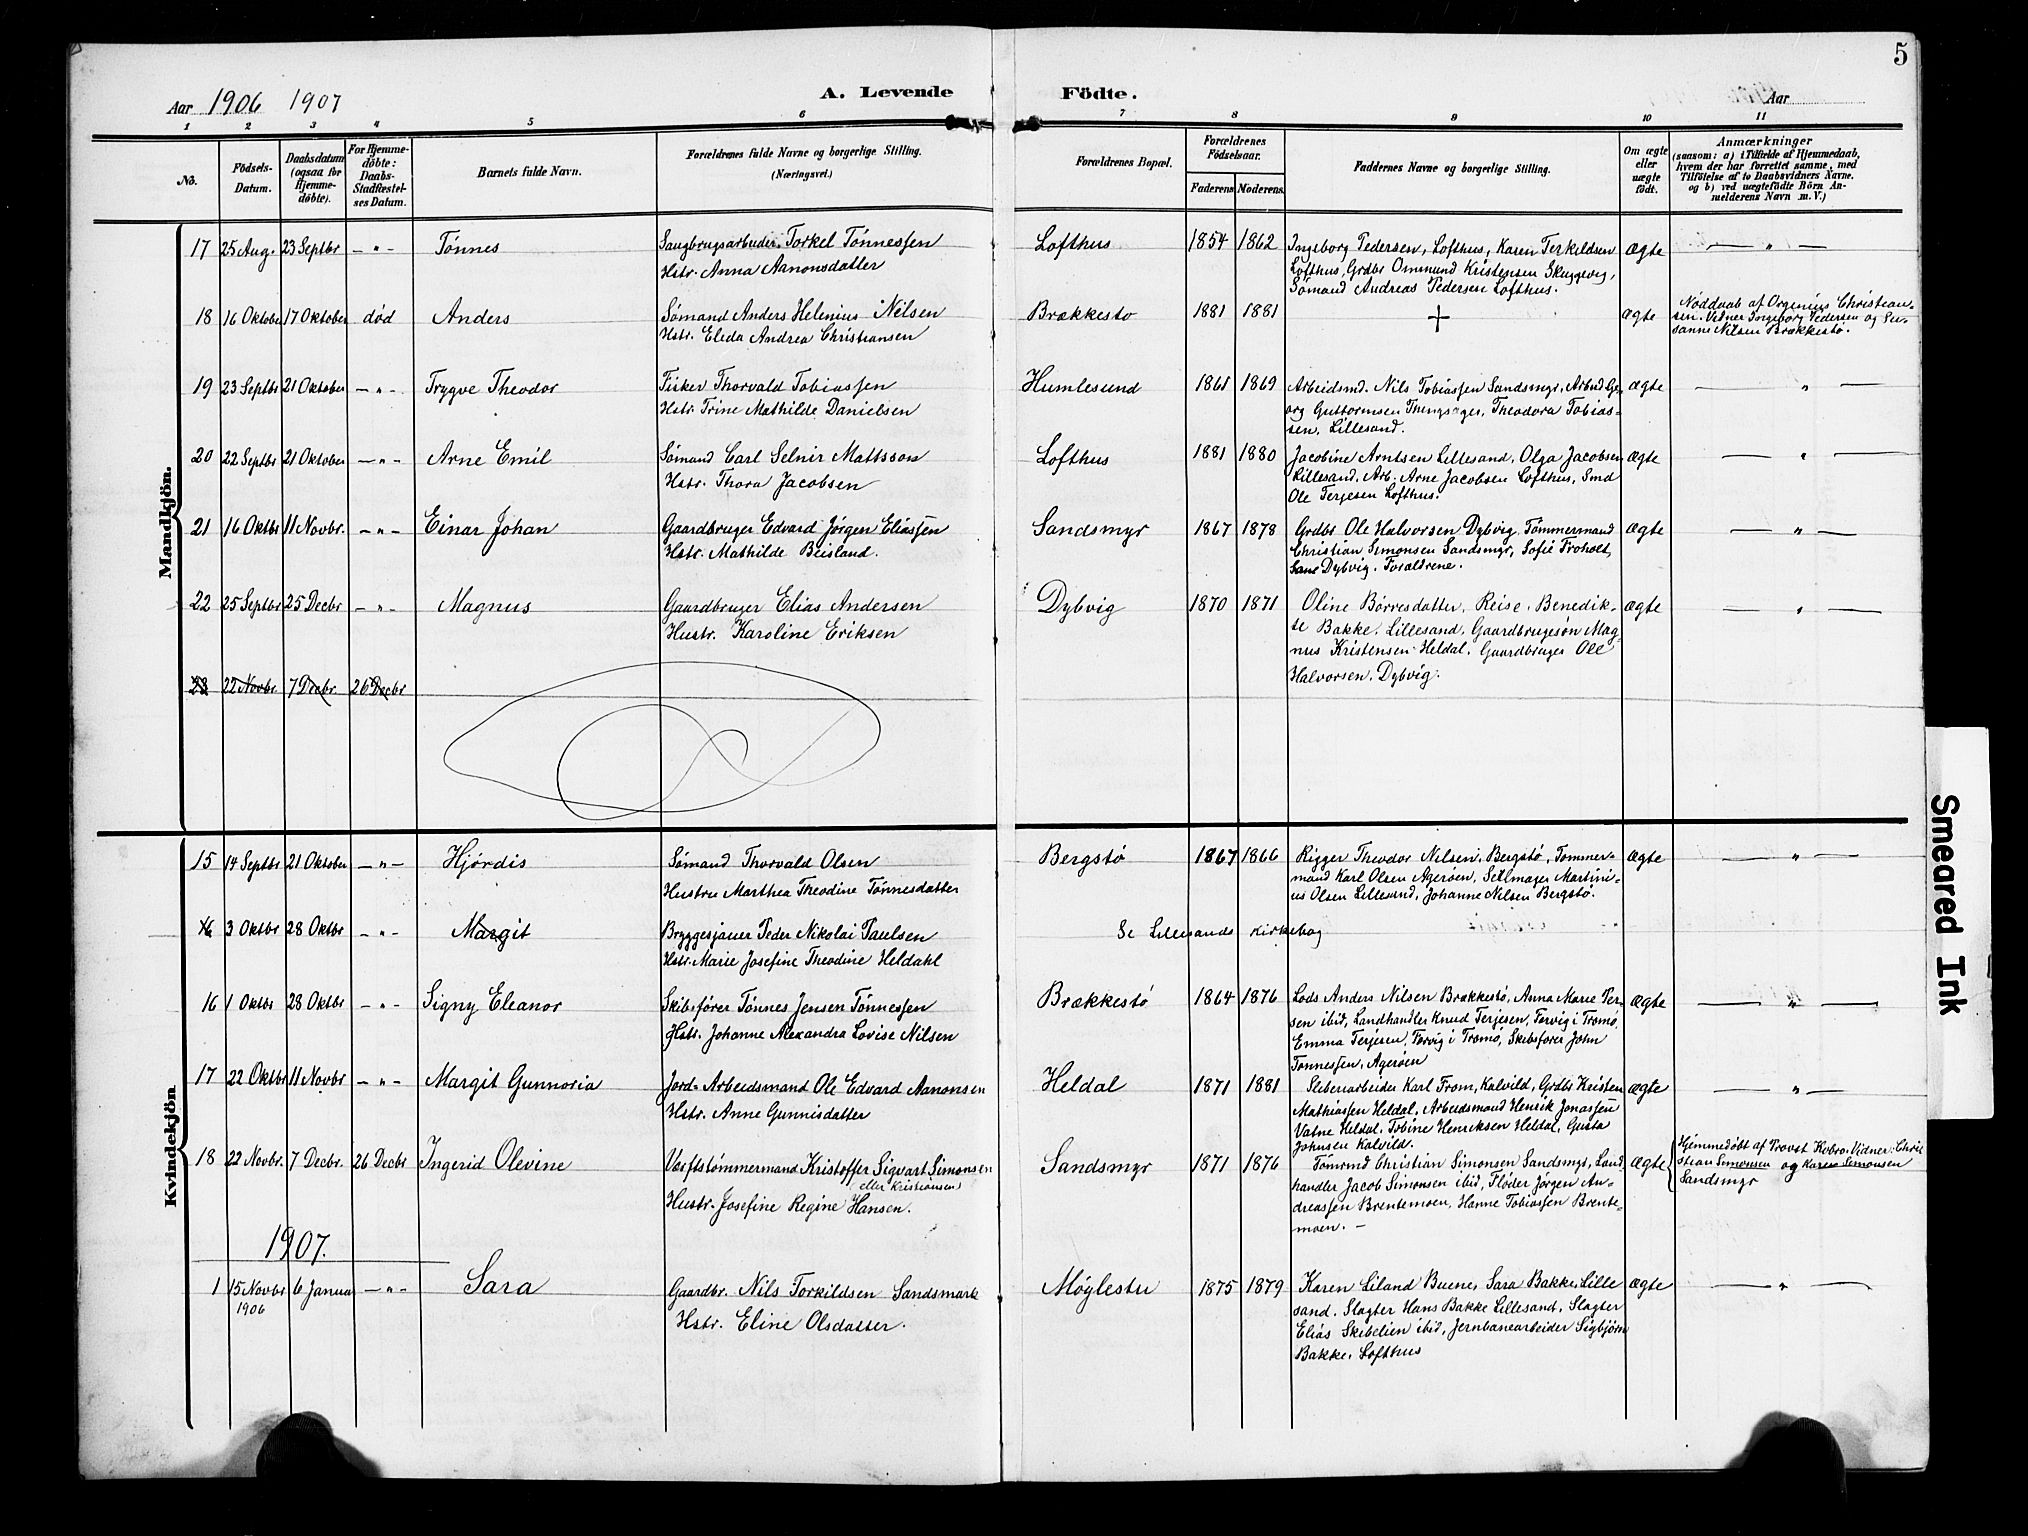 5
Aar 1906 1907 A. Levende Födte. Aar
1 2 3 4 5 6 7 8 9 10 11
No.
Fødsels-
Datum.
Daabsdatum
(ogsaa for
Hjemme-
døbte).
For Hjemme-
døbte:
Daabs-
Stadfæstel-
ses Datum.
Barnets fulde Navn.
Forældrenes fulde Navne og borgerlige Stilling.
(Næringsvei.)
Forældrenes Bopæl.
Forældrenes
Fødselsaar.
Faderens Moderens
Faddernes Navne og borgerlige Stilling.
Om ægte
eller
uægte
født.
Anmærkninger
(saasom: a) i Tilfælde af Hjemmedaab,
hvem der har forrettet samme, med
Tilføielse af to Daabsvidners Navne.
og b) ved uægtefødte Börn An-
melderens Navn m. V.)
Mandkjön.
17 25 Aug. 23 Septbr — " — Tønnes
Saugbrugsarbeider Torkel Tønnessen
Hstr. Anna Aanonsdatter
Lofthus 1854 1862
Ingeborg Pedersen, Lofthus, Karen Terkildsen
Lofthus, Grdbr Ommund Kristensen Skuggevig,
Sømand Andreas Pedersen Lofthus.
ægte — " —
18 16 Oktober 17 Oktober død Anders
Sømand Anders Helenius Nilsen
Hstr. Elida Andrea Christiansen
Brækkestø 1881 1881 + ægte
Nøddaab af Orgenius Christian-
sen. Vidner Ingeborg Pedersen og Su-
sanne Nilsen Brækkestø.
19 23 Septbr 21 Oktober — " — Trygve Theodor
Fisker Thorvald Tobiassen
Hstr. Trine Mathilde Danielsen
Humlesund 1861 1869
Arbeidsmd. Nils Tobiassen Sandsmyr, Arbeid Ge-
org Guttormsen Thingsager, Theodora Tobias-
sen, Lillesand.
ægte — " —
20 22 Septbr 21 Oktober — " — Arne Emil
Sømand Carl Selnir Mattsson
Hstr. Thora Jacobsen
Lofthus 1881 1880
Jacobine Arntsen Lillesand, Olga Jacobsen
Lillesand, Arb. Arne Jacobsen Lofthus, Smd
Ole Terjesen Lofthus.
ægte — " —
21 16 Oktbr 11 Novbr. — " — Einar Johan
Gaardbruger Edvard Jørgen Eliassen
Hstr. Mathilde Beisland.
Sandsmyr 1867 1878
Grdbr Ole Halvorsen Dybvig Tømmermand
Christian Simonsen Sandsmyr, Sofie Froholt,
Sane Dybvig. Forældrene.
ægte — " —
22 25 Septbr 25 Decbr — " — Magnus
Gaardbruger Elias Andersen
Hustr. Karoline Eriksen
Dybvig 1870 1871
Oline Børresdatter, Reise, Benedik-
te Bakke, Lillesand, Gaardbrugesøn Mag-
nus Kristensen Heldal, Gaardbruger Ole
Halvorsen, Dybvig.
ægte — " —
23 22 Novbr 7 Decbr. 26 Decbr
Kvindekjön
15 14 Septbr 21 Oktober — " — Hjørdis
Sømand Thorvald Olsen
Hustru Marthea Theodine Tønnesdatter
Bergstø 1867 1866
Rigger Theodor Nilsen, Bergstø, Tømmer-
mand Karl Olsen Agerøen, Seilmager Martini-
us Olsen Lillesand, Johanne Nilsen Bergstø.
ægte — " —
16 3 Oktbr 28 Oktbr — " — Margit
Bryggesjauer Peder Nikolai Paulsen
Hstr. Marie Josefine Theodine Heldahl
Se Lillesands Kirkebog
16 1 Oktbr 28 Oktbr — " — Signy Eleanor
Skibsfører Tønnes Jensen Tønnessen
Hstr. Johanne Alexandra Lovise Nilsen
Brækkestø 1864 1876
Lods Anders Nilsen Brækkestø, Anna Marie Ter-
sen ibid, Landhandler Knud Terjesen, Torvig i Tromø,
Emma Terjesen, Torvig i Tromø, Skibsfører John
Tønnessen, Agerøen
ægte — " —
17 22 Oktbr 11 Novbr — " — Margit Gunnoria
Jord-Arbeidsmand Ole Edvard Aanonsen
Hstr. Anne Gunnisdatter
Heldal 1871 1881
Sliberiarbeider Karl From, Kalvild, Grdbr Kristen
Mathiassen Heldal, Arbeidsmand Henrik Jonassen
Vatne Heldal, Tobine Henriksen Heldal, Gusta
Johnsen Kalvild.
ægte — " —
18 22 Novbr. 7 Decbr. 26 Decbr Ingerid Olevine
Værftstømmermand Kristoffer Sigvart Simonsen
(eller Kristiansen)
Hustr. Josefine Regine Hansen.
Sandsmyr 1871 1876
Tømrmd Christian Simonsen Sandsmyr, Land
handler Jacob Simonsen ibid, Fløder Jørgen An-
dreassen Brentemoen, Hanne Tobiassen Brente-
moen. —
ægte
Hjemmedøbt af Provst Kobro. Vidner: Chri
stian Simonsen og Karen Simonsen
Sandsmyr
1907.
1 15 Novbr 6 Januar — " — Sara
1906
Gaardbr. Nils Torkildsen Sandsmark
Hstr. Eline Olsdatter.
Møglestu 1875 1879
Karen Liland Buene, Sara Bakke, Lille
sand. Slagter Hans Bakke Lillesand, Slagter
Elias Skibelien ibid, Jernbanearbeider Sigbjørn
Bakke, Lofthus
ægte — " —
Smeared Ink